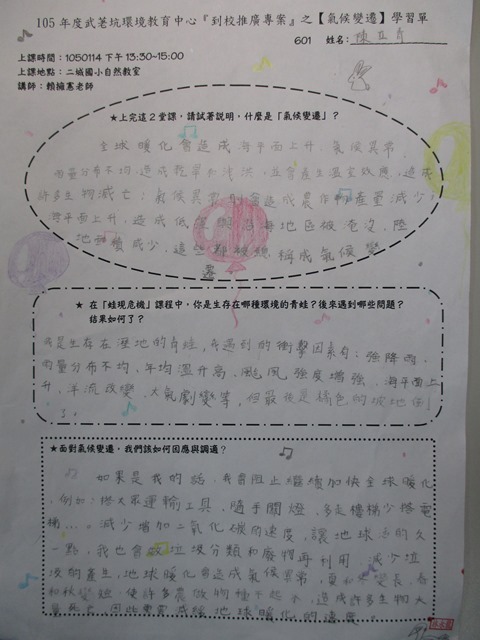 105年度武荖坑環境教育中心『到校推廣專案』之【氣候變遷】學習單
601 姓名:陳
上課時間:1050114下午13:30~15:00
上課地點:二城國小自然教室
講師:賴擁憲老師
★上完這2堂課,請試著說明,什麼是「氣候變遷」?
全球暖化會造成海平面上升、氣候異常、
雨量分布不均,造成乾旱和洪洪,並會產生溫室效應,造成
許多生物滅亡;氣候異常則會造成農作物產量減少,
海平面上升,造成低窪與沿海地區被淹沒,陸
地面積減少,這些都被統稱成氣候變
遷。
★在「蛙現危機」課程中,你是生存在哪種環境的青蛙?後來遇到哪些問題?
結果如何了?
我是生存在溼地的青蛙,我遇到的衝擊因素有:強降雨、
雨量分布不均、年均溫升高、颱風強度增強、海平面上
升、洋流改變、大氣劇變等,但最後是橘色的坡地倒
了。
★面對氣候變遷,我們該如何因應與調適?
如果是我的話,我會阻止繼續加快全球暖化
,例如:搭大眾運輸工具,隨手關燈,多走樓梯少搭電
梯...。減少增加二氧化碳的速度,讓地球活的久
一點,我也會做垃圾分類和廢物再利用,減少垃
圾的產生,地球暖化會造成氣候異常,夏和冬變長,春
和秋變短,使許多農做物種不起來,造成許多生物大
量死亡,因此要減緩地球暖化的速度。